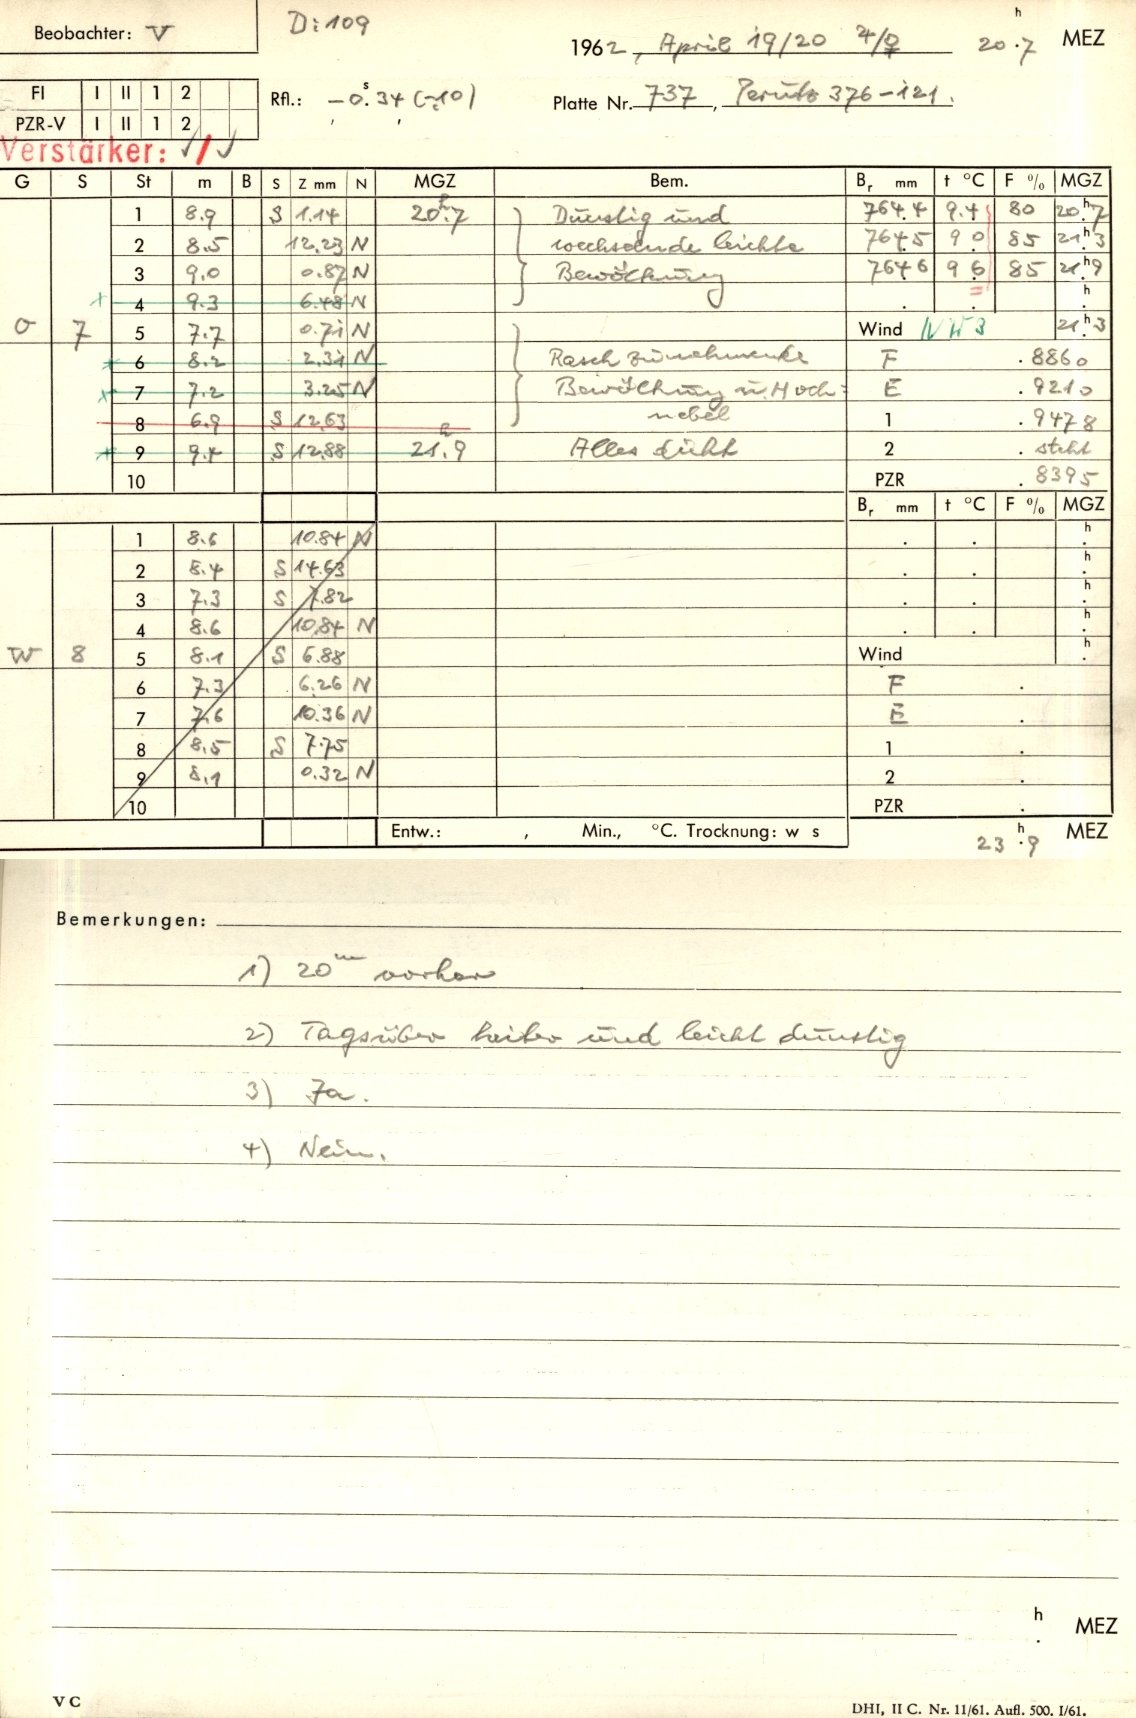 Beobachter: V
D: 109
1962, April 19/20 4/♀ 20h.7 MEZ
FI I II 1 2
PZR-V I II 1 2
Rfl.: -0s.34 (-10)
Platte Nr. 737, Perutz 376-121.
Verstärker: √/√
G S St m B S Z mm N MGZ Bem. Br mm t °C F % MGZ
1 8.9 S 1.14 20h.7 Dunstig und 764.4 9.4 80 20h.7
2 8.5 12.23 N wechselnde leichte 764.5 9.0 85 21h.3
3 9.0 0.87 N Bewölkung 764.6 9.6 85 21h.9
4 9.3 6.48 N h
O 7 5 7.7 0.71 N Wind NW 3 21h.3
6 8.2 2.31 N Rasch zunehmende F .8860
7 7.2 3.25 N Bewölkung u. Hoch= E .9210
8 6.9 S 12.63 nebel 1 .9478
9 9.4 S 12.88 21h.9 Alles dicht 2 . steht
10 PZR .8395
Br mm t °C F % MGZ
1 8.6 10.84 N . . h
2 8.4 S 14.63 . . h
3 7.3 S 7.82 . . h
4 8.6 10.84 N . . h
W 8 5 8.1 S 6.88 Wind h
6 7.3 6.26 N F .
7 7.6 10.36 N E .
8 8.5 S 7.75 1 .
9 8.1 0.32 N 2 .
10 PZR .
Entw.: , Min., °C. Trocknung: w s
23h.9 MEZ
Bemerkungen:
1) 20m vorher
2) Tagsüber heiter und leicht dunstig
3) Ja.
4) Nein.
h. MEZ
V C
DHI, II C. Nr. 11/61. Aufl. 500. I/61.